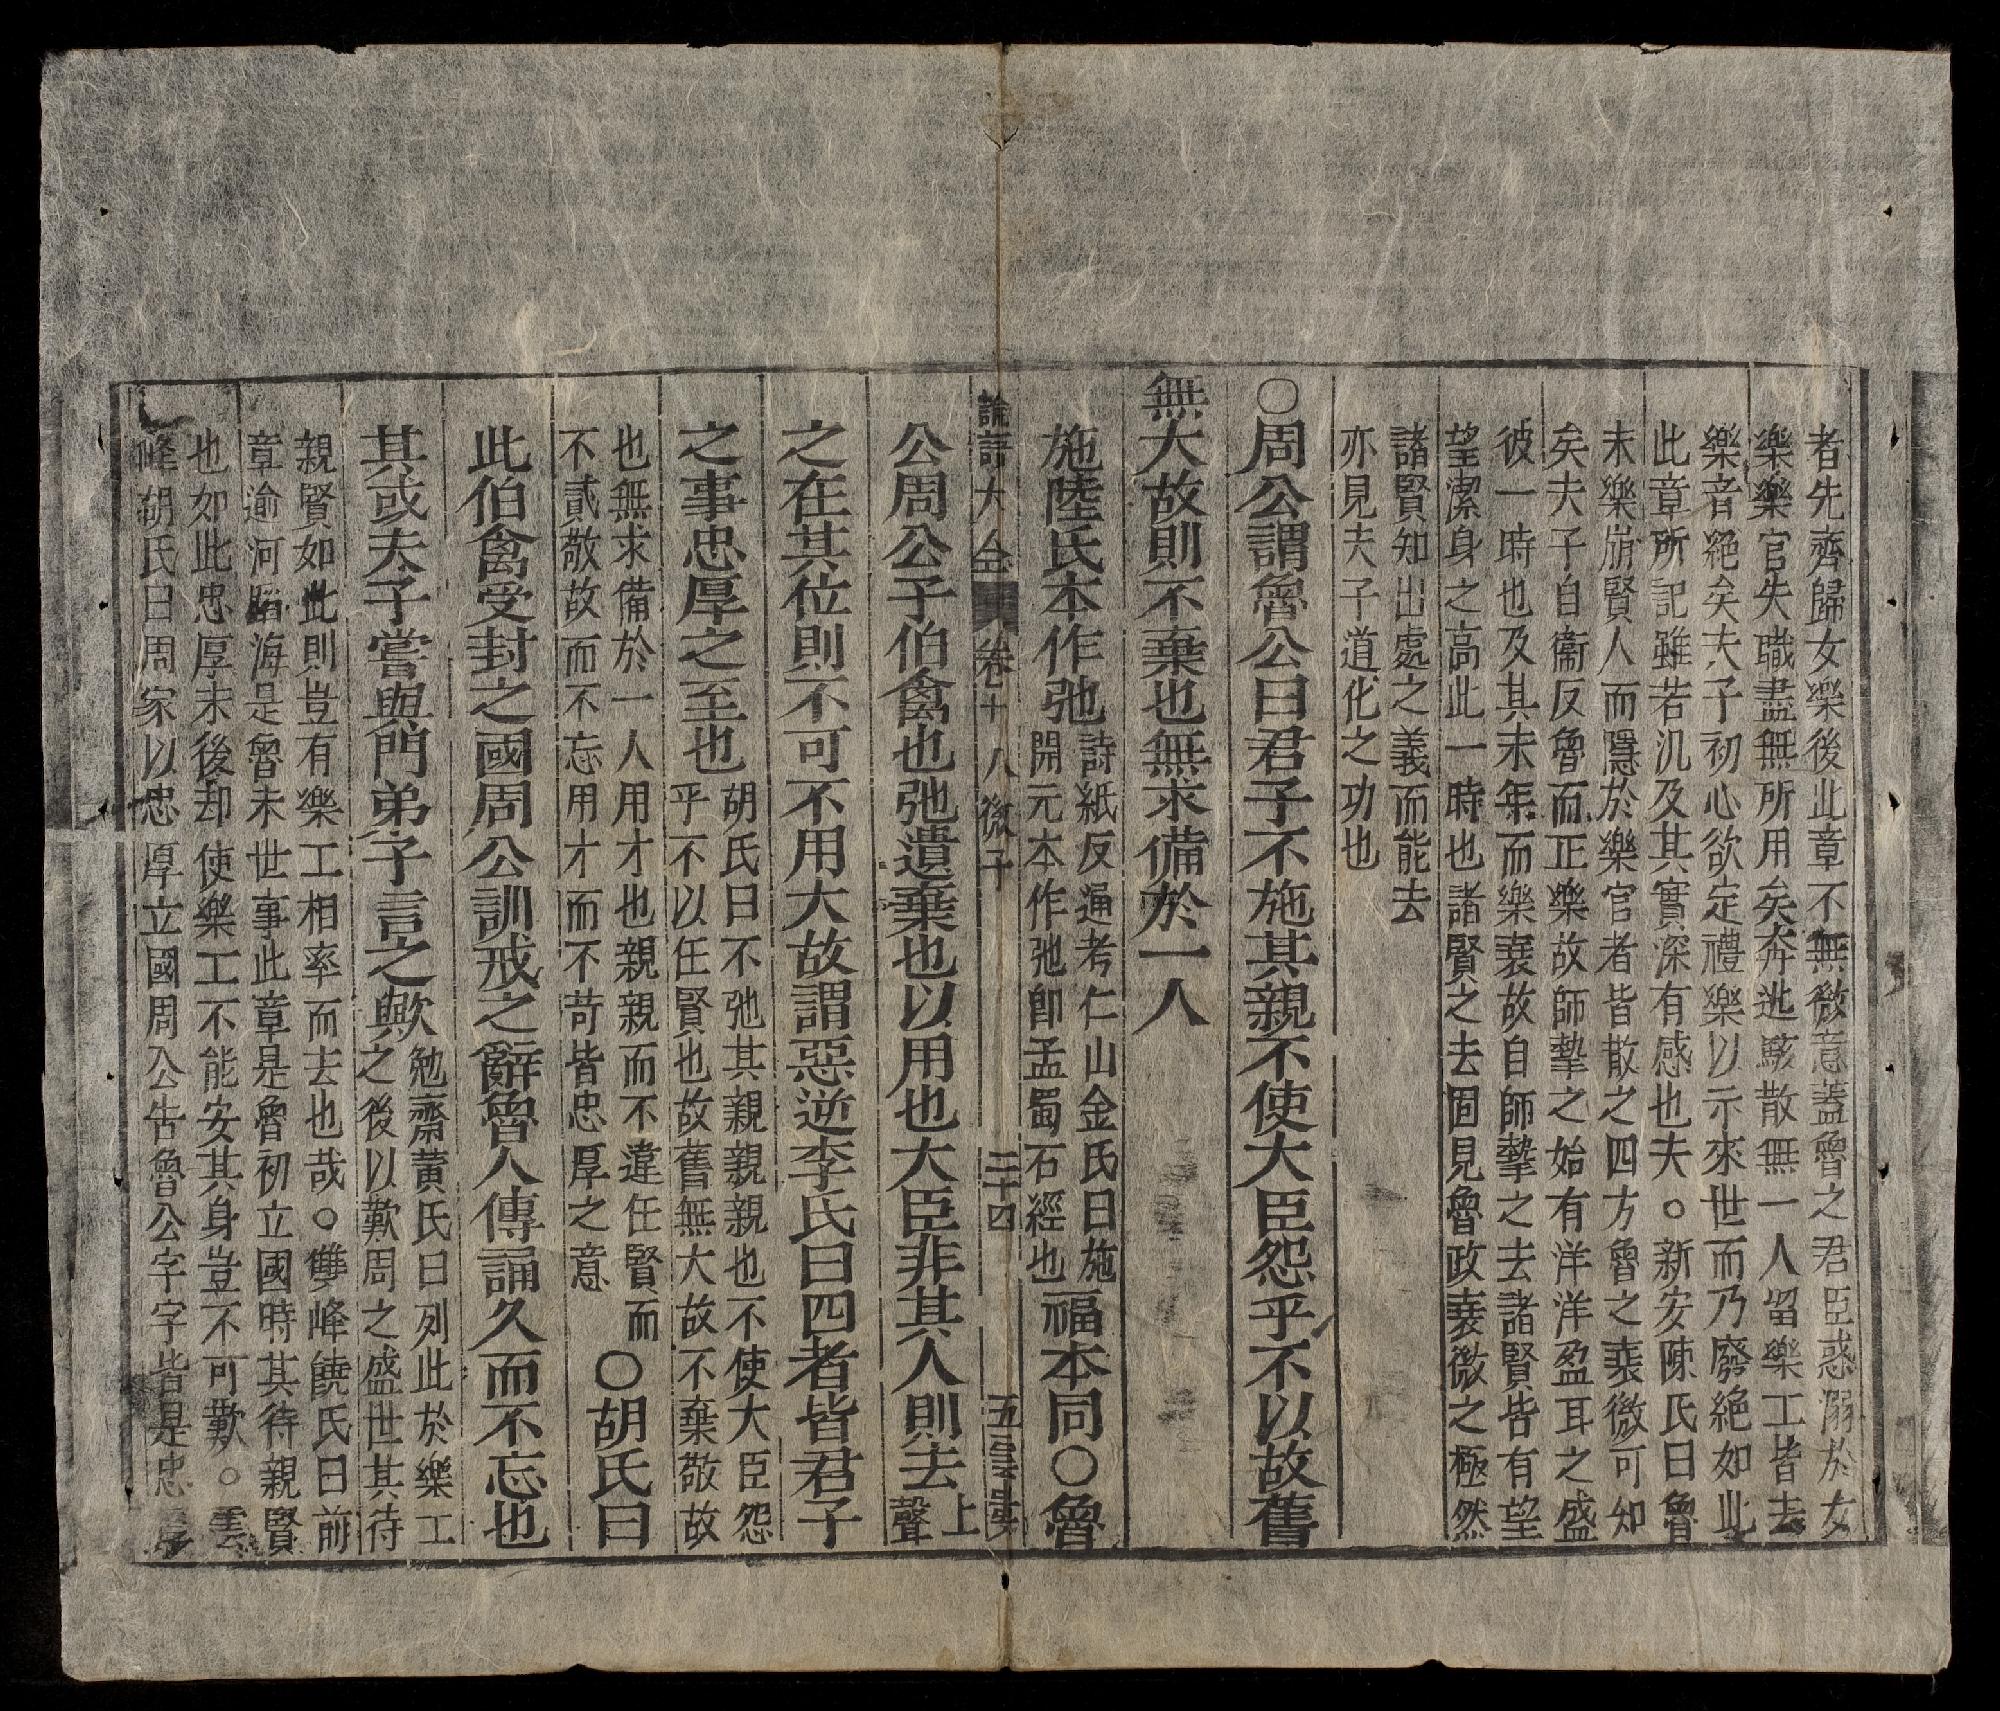 者先齊歸女樂後此章不無微意蓋魯之君臣惑溺於女
樂樂官失職盡無所用矣奔逃駭散無一人留樂工皆去
樂音絕矣夫子初心欲定禮樂以示來世而乃廢絕如此
此章所記雖若汎及其實深有感也夫○新安陳氏曰魯
末樂崩賢人而隱於樂官者皆散之四方魯之衰微可知
矣夫子自衞反魯而正樂故師摯之始有洋洋盈耳之盛
彼一時也及其末年而樂衰故自師摯之去諸賢皆有望
望潔身之高此一時也諸賢之去固見魯政衰微之極然
諸賢知出處之義而能去
亦見夫子道化之功也
○周公謂魯公曰君子不施其親不使大臣怨乎不以故舊
無大故則不棄也無求備於一人
施陸氏本作弛
詩紙反通考仁山金氏曰施
開元本作弛卽孟蜀石經也
福本同○魯
論語大全 卷十八 微子 二十四 五雲婁
公周公子伯禽也弛遺棄也以用也大臣非其人則去
上
聲
之在其位則不可不用大故謂惡逆李氏曰四者皆君子
之事忠厚之至也
胡氏曰不弛其親親親也不使大臣怨
乎不以任賢也故舊無大故不棄敬故
也無求備於一人用才也親親而不違任賢而
不貳敬故而不忘用才而不苛皆忠厚之意
○胡氏曰
此伯禽受封之國周公訓戒之辭魯人傳誦久而不忘也
其或夫子嘗與門弟子言之歟
勉齋黃氏曰列此於樂工
之後以歎周之盛世其待
親賢如此則豈有樂工相率而去也哉○雙峰饒氏曰前
章逾河蹈海是魯末世事此章是魯初立國時其待親賢
也如此忠厚末後却使樂工不能安其身豈不可歎○雲
峰胡氏曰周家以忠厚立國周公告魯公字字皆是忠厚